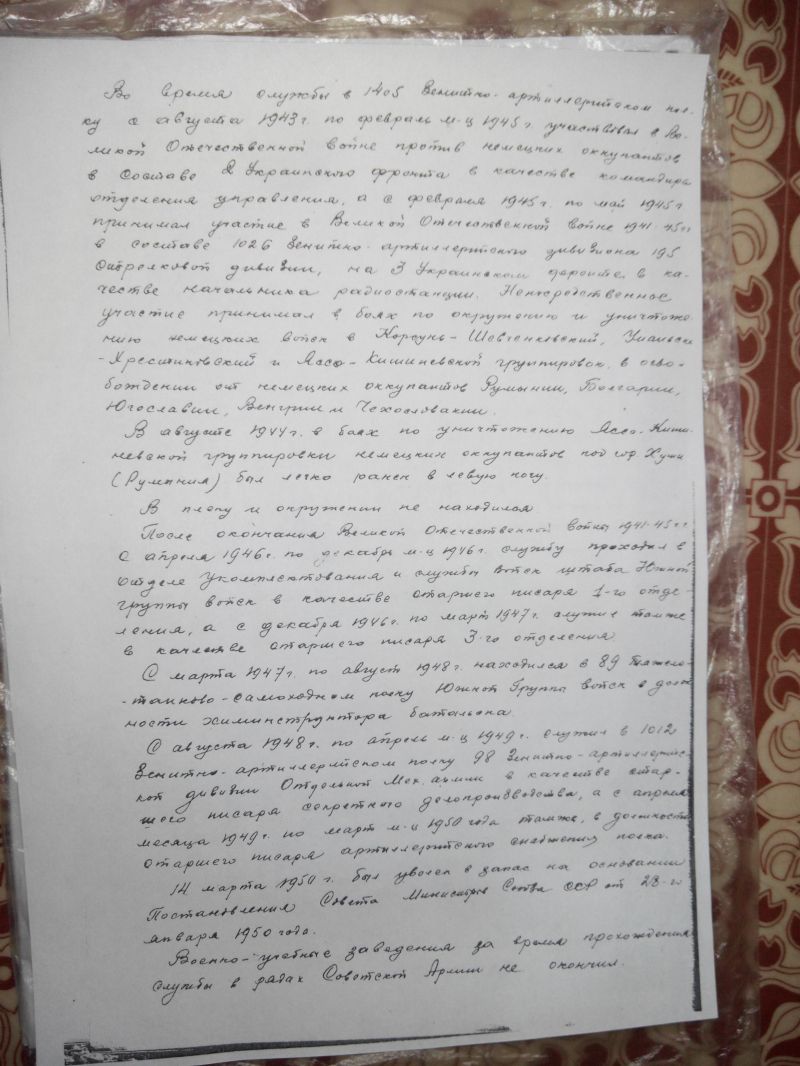 Во время службы в 1405 Зенитно-артиллерийском пол-
ку с августа 1943г. по февраль м-ц 1945г. участвовал в Ве-
ликой Отечественной войне против немецких оккупантов
в составе 2 Украинского фронта в качестве командира
отделения управления, а с февраля 1945г. по май 1945г.
принимал участие в Великой Отечественной войне 1941-45гг
в составе 1026 Зенитно-артиллерийского дивизиона 195
Стрелковой дивизии, на 3 Украинском фронте, в ка-
честве начальника радиостанции. Непосредственное
участие принимал в боях по окружению и уничтоже-
нию немецких войск в Корсунь-Шевченковский,
и Ясско-Кишиневской группировок, в осво-
бождении от немецких оккупантов Румынии, Болгарии,
Югославии, Венгрии и Чехословакии.
В августе 1944г. в боях по уничтожению Ясско-Киши-
невской группировки немецких оккупантов под гор. Хуши
(Румыния) был легко ранен в левую ногу.
В плену и окружении не находился
После окончания Великой Отечественной войны 1941-45гг
с апреля 1946г. по декабрь м-ц 1946г. службу проходил в
отделе укомплектования и службы войск штаба Южной
группы войск в качестве старшего писаря 1-го отде-
ления, а с декабря 1946г. по март 1947г. служил там же
в качестве старшего писаря 3-го отделения
С марта 1947г. по август 1948г. находился в 89 Тяжело-
-танково-самоходном полку Южной Группы войск в долж
ности химинструктора батальона.
С августа 1948г. по апрель м-ц 1949г. служил в 1012
Зенитно-артиллерийском полку 98 Зенитно-артиллерийс-
кой дивизии Отдельной Мех. армии в качестве стар-
шего писаря секретного делопроизводства, а с апреля
месяца 1949г. по март м-ц 1950 года там же, в должности
старшего писаря артиллерийского снабжения полка.
14 марта 1950 г. был уволен в запас на основании
Постановления Совета Министров Союза ССР от 28-го
января 1950 года.
Военно-учебные заведения за время прохождения
службы в рядах Советской Армии не окончил.